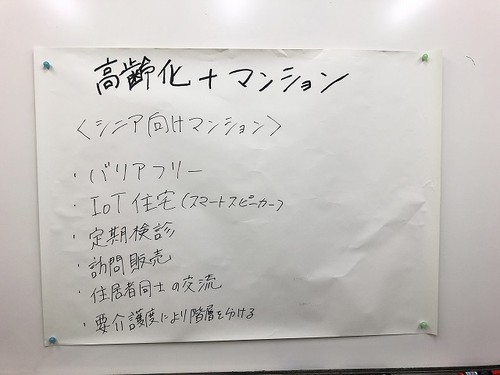 高齢化+マンション
<シニア向けマンション>
・バリアフリー
・IoT住宅(スマートスピーカー)
・定期検診
・訪問販売
・住居者同士の交流
・要介護度により階層を分ける